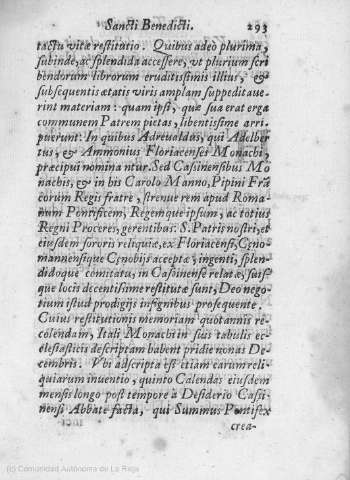 Sancti Benedicti. 293
tactu vitæ restitutio. Quibus adeò plurima,
subinde, ac splendida accessere, vt plurium scri
bendorum librorum eruditissimis illius, &
subsequentis ætatis viris amplam suppeditaue-
rint materiam: quam ipsi, quæ sua erat erga
communem Patrem pietas, libentissime arri-
puerunt. In quibus Adreualdus, qui Adelber
tus, & Ammonius Floriacenses Monachi,
præcipui nominantur. Sed Cassinensibus Mo
nachis, & in his Carolo Manno, Pipini Frā
corum Regis fratre, strenue rem apud Roma-
num Pontificem, Regemque ipsum, ac totius
Regni Proceres, gerentibas. S. Patris nostri, et
eiusdem sororis reliquiæ, ex Floriacensi, Cęno-
mannensique Cęnobijs acceptæ, ingenti, splen-
didoque comitatu, in Cassinense relatæ, suisq́
que locis decentissime restitutæ sunt, Deo nego-
tium istud prodigijs insignibus prosequente.
Cuius restitutionis memoriam quotannis re-
colendam, Itali Monachi in suis tabulis ec-
clesiasticis descriptam habent pridie nonas De-
cembris. Vbi adscripta est etiam earum reli-
quiarum inuentio, quinto Calendas eiusdem
mensis longo post tempore à Desiderio Cassi-
nensi Abbate facta, qui Summus Pontifex
crea-
(c) Comunidad Autónoma de La Rioja